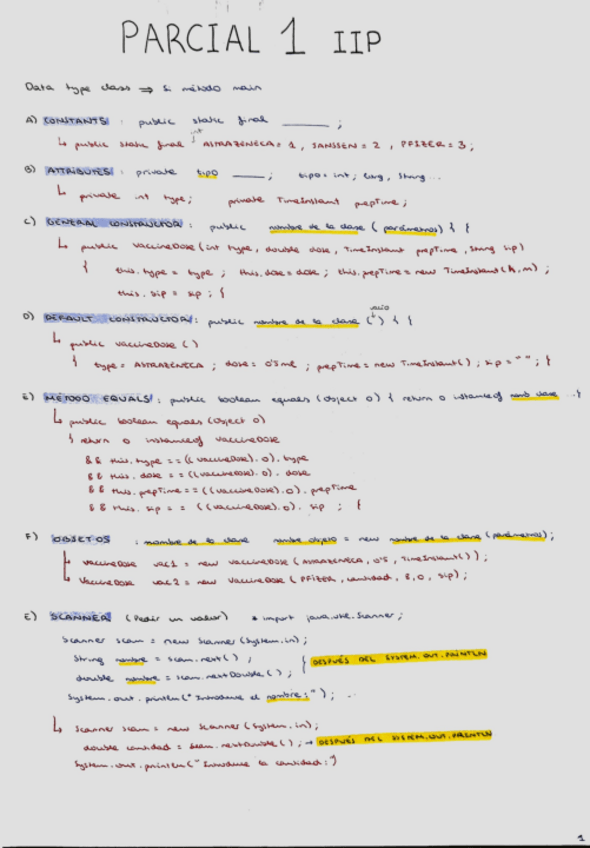 PARCIAL 1 IIP
Data type class ⇒ Si método main
A) CONSTANTS : public static final ______ ;
int
↳ public static final ASTRAZENECA = 1 , JANSSEN = 2 , PFIZER = 3 ;
B) ATTRIBUTES : private tipo ____ ; tipo = int, long, String ...
↳ private int type ; private TimeInstant prepTime ;
C) GENERAL CONSTRUCTOR : public nombre de la clase ( parámetros ) { }
↳ public VaccineDose (int type, double dose, TimeInstant prepTime, String sip)
{ this.type = type ; this.dose = dose ; this.prepTime = new TimeInstant (h,m) ;
this.sip = sip ; }
vacío
D) DEFAULT CONSTRUCTOR : public nombre de la clase ( ) { }
↳ public VaccineDose ( )
{ type = ASTRAZENECA ; dose = 0'5 ml ; prepTime = new TimeInstant ( ) ; sip = " " ; }
E) MÉTODO EQUALS : public boolean equals (Object o) { return o instanceof nomb clase ... }
↳ public boolean equals (Object o)
{ return o instanceof VaccineDose
&& this.type == ((VaccineDose). o). type
&& this. dose == ((VaccineDose). o). dose
&& this.prepTime == ((VaccineDose). o). prepTime
&& this. sip == ((VaccineDose). o). sip ; }
F) OBJETOS : nombre de la clase nombre objeto = new nombre de la clase (parámetros) ;
↳ VaccineDose vac1 = new VaccineDose (ASTRAZENECA, 0'5, TimeInstant( ) ) ;
↳ VaccineDose vac2 = new VaccineDose ( PFIZER, cantidad, 8,0, sip) ;
E) SCANNER (Pedir un valor) * import java.util.Scanner ;
Scanner scan = new Scanner (System.in) ;
String nombre = scan.next ( ) ; } DESPUÉS DEL SYSTEM.OUT.PRINTLN
double nombre = scan.nextDouble ( ) ;
System.out.println (" Introduce el nombre : ") ; ...
↳ Scanner scan = new Scanner (System.in) ;
double cantidad = scan.nextDouble ( ) ; → DESPUÉS DEL SYSTEM.OUT.PRINTLN
System.out.println (" Introduce la cantidad : ")
1